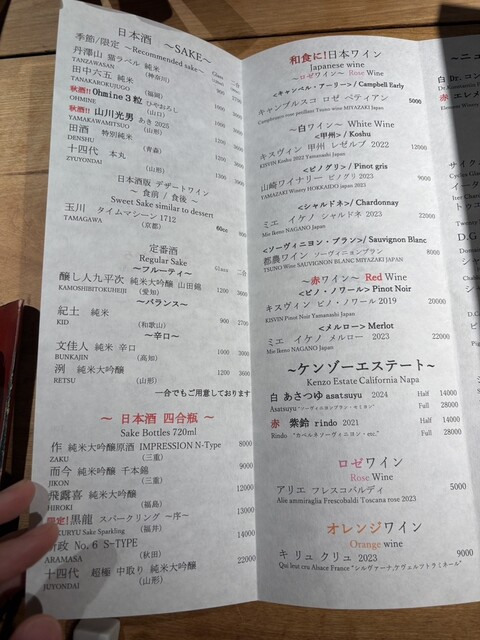 日本酒 ～SAKE～
季節/限定 ～Recommended sake～
丹澤山 麗ラベル 純米
TANZAWASAN (神奈川)
田中六五 純米
TANAKAROKUJUGO (福岡)
秋酒!! Ohmine3粒 ひやおろし
OHMINE (山口)
秋酒!! 山川光男 あき2025
YAMAKAWAMITSUO (山形)
田酒 特別純米
DENSHU (青森)
十四代 本丸
ZYUYONDAI (山形)
日本酒版 デザートワイン
～ 食前 / 食後 ～
Sweet Sake similar to dessert
玉川 タイムマシーン1712 60cc 900
TAMAGAWA (京都)
定番酒
Regular Sake
～フルーティ～
醸し人九平次 純米大吟醸 山田錦
KAMOSHIBITOKUHEIJI (愛知) 1200 3600
～バランス～
紀土 純米
KID (和歌山) 900 2700
～辛口～
文佳人 純米 辛口
BUNKAJIN (高知) 1000 3000
洌 純米大吟醸
RETSU (山形) 1200 3600
一合でもご用意しております
～ 日本酒 四合瓶 ～
Sake Bottles 720ml
作 純米大吟醸原酒 IMPRESSION N-Type 8000
ZAKU (三重)
而今 純米吟醸 千本錦 9000
JIKON (三重)
飛露喜 純米大吟醸 12000
HIROKI (福島)
限定!黒龍 スパークリング ～序～ 13000
KURYU Sake Sparkling (福井)
新政 No.6 S-TYPE 14000
ARAMASA (秋田)
十四代 超極 中取り 純米大吟醸 22000
JUYONDAI (山形)
和食に!日本ワイン
Japanese wine
～ロゼワイン～ Rose Wine
<キャンベル・アーリー> / Campbell Early
キャンブルスコ ロゼ ペティアン 5000
Campbruscco rose petillant Tsuno wine MIYAZAKI Japan
～白ワイン～ White Wine
<甲州> / Koshu
キスヴィン 甲州 レゼルブ 2022 12000
KISVIN Koshu 2022 Yamanashi Japan
<ピノグリ> / Pinot gris
山崎ワイナリー ピノグリ 2023 9000
YAMAZAKI Winery HOKKAIDO japan 2023
<シャルドネ> / Chardonnay
ミエ イケノ シャルドネ 2023 22000
Mie Ikeno NAGANO Japan
<ソーヴィニヨン・ブラン> / Sauvignon Blanc
都農ワイン ソーヴィニヨンブラン 8000
TSUNO Wine SAUVIGNON BLANC MIYAZAKI JAPAN
～赤ワイン～ Red Wine
<ピノ・ノワール> Pinot Noir
キスヴィン ピノ・ノワール 2019 20000
KISVIN Pinot Noir Yamanashi Japan
<メルロー> Merlot
ミエ イケノ メルロー 2023 22000
Mie Ikeno NAGANO Japan
～ケンゾーエステート～
Kenzo Estate California Napa
白 あさつゆ asatsuyu 2024 Half 14000
Asatsuyu "ソーヴィニヨンブラン・セミヨン" Full 28000
赤 紫鈴 rindo 2021 Half 14000
Rindo "カベルネソーヴィニヨン・etc." Full 28000
ロゼワイン
Rose Wine
アリエ フレスコバルディ 5000
Alie ammiraglia Frescobaldi Toscana rose 2023
オレンジワイン
Orange wine
キ リュ クリュ 2023 9000
Qui leur cru Alsace France "シルヴァーナ,ゲヴェルツトラミネール"
～ニュ
白 Dr. コン
赤 エレメ
サイクル
Cycles
イータ
Iter Char
トゥエ
D.G
シャ
D.C
ピ
Pig